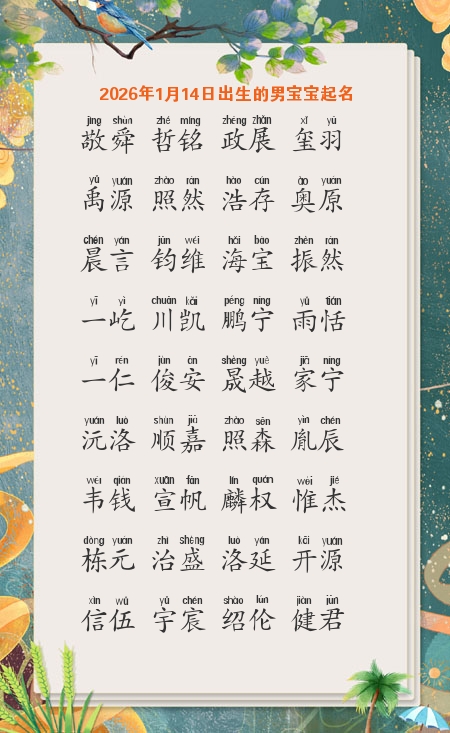 2026年1月14日出生的男宝宝起名
jìng shùn zhé míng zhèng zhǎn xǐ yǔ
敬舜 哲铭 政展 玺羽
yǔ yuán zhào rán hào cún ào yuán
禹源 照然 浩存 奥原
chén yán jūn wéi hǎi bǎo zhèn rán
晨言 钧维 海宝 振然
yī yì chuān kǎi péng níng yǔ tián
一屹 川凯 鹏宁 雨恬
yī rén jùn ān shèng yuè jiā níng
一仁 俊安 晟越 家宁
yuán luò shùn jiā zhào sēn yìn chén
沅洛 顺嘉 照森 胤辰
wéi qián xuān fān lín quán wéi jié
韦钱 宣帆 麟权 惟杰
dòng yuán zhì shèng luò yán kāi yuán
栋元 治盛 洛延 开源
xìn wǔ yǔ chén shào lún jiàn jūn
信伍 宇宸 绍伦 健君